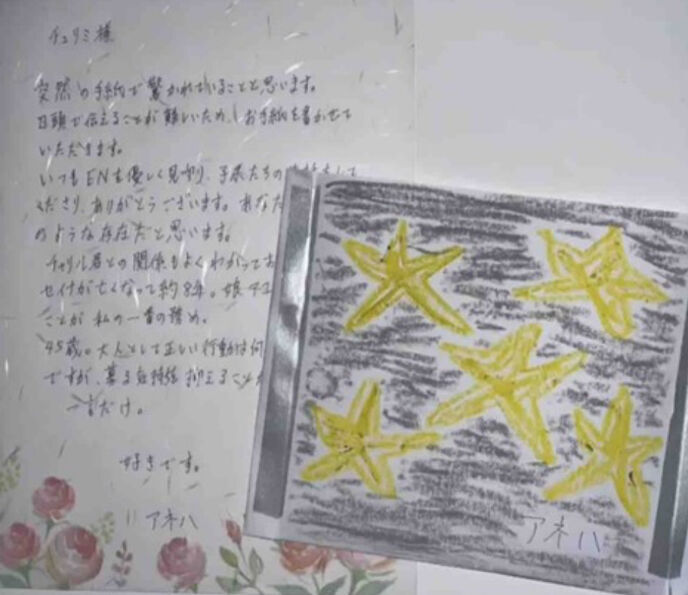 チュリミ様
突然の手紙で驚かれていることと思います。
口頭で伝えることが難しいため、お手紙を書かせて
いただきます。
いつもENを優しく見守り、子供たちの
くださり、ありがとうございます。あなた
のような存在だと思います。
チャリル君との関係もよくわかってお
セイイが亡くなって約8年。娘
ことが私の一番の務め。
45歳。大人として正しい行動は何
ですが、募る気持を抑えること
一言だけ。
好きです。
アネハ
アネハ